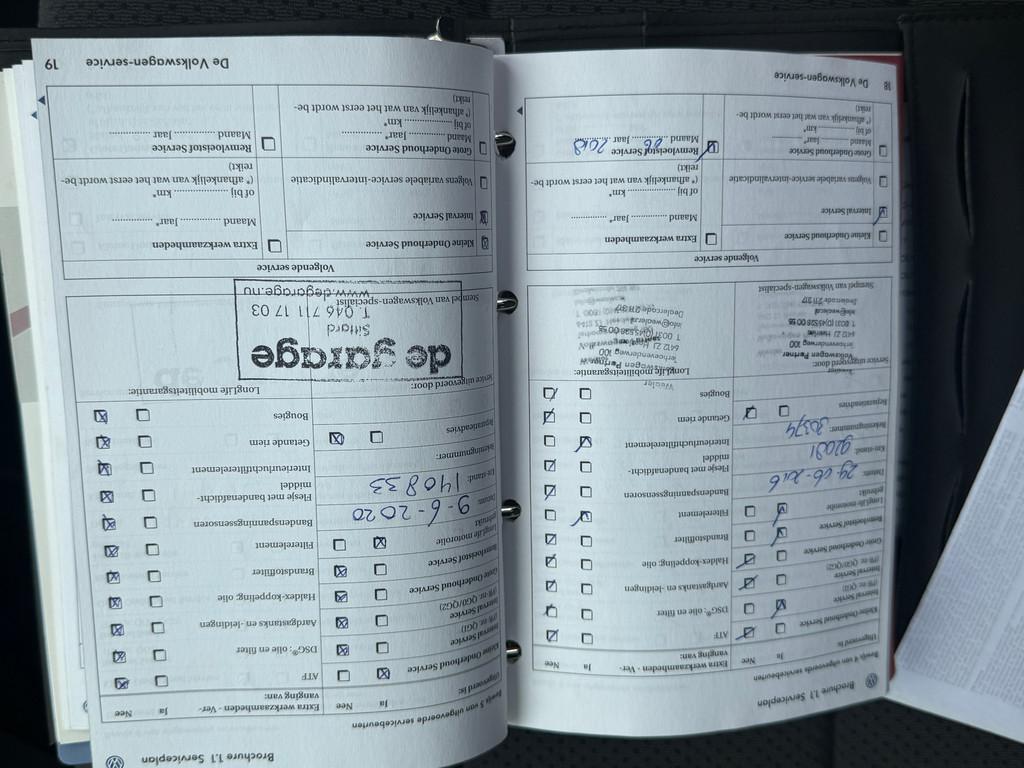 Brochure 1.1 Serviceplan
Bewijs 4 van uitgevoerde servicebeurten
Uitgevoerd is: Ja Nee
Kleine Onderhoud Service
Interval Service
(PR-nr. QG1)
Interval Service
(PR-nr. QG0/QG2)
Grote Onderhoud Service
Remvloeistof Service
LongLife motorolie
gebruikt
Datum: 29-06-2016
Km-stand: 92081
Rekeningnummer: 30374
Reparatieadvies
Service uitgevoerd door:
Volkswagen Partner
Terhoevenderweg 100
6412 ZJ Heerlen
info@wealer.nl
Stempel van Volkswagen-specialist
Extra werkzaamheden - Ver-
vanging van: Ja Nee
ATF
DSG®: olie en filter
Aardgastanks en -leidingen
Haldex-koppeling: olie
Brandstoffilter
Filterelement
Bandenspanningssensoren
Flesje met bandenafdicht-
middel
Interieurluchtfilterelement
Getande riem
Bougies
LongLife mobiliteitsgarantie:
Volgende service
Kleine Onderhoud Service
Interval Service
Volgens variabele service-intervalindicatie
Grote Onderhoud Service
Maand ............ Jaar* ............
of bij ............ km*
(* afhankelijk van wat het eerst wordt be-
reikt)
Extra werkzaamheden
Maand ............ Jaar* ............
of bij ............ km*
(* afhankelijk van wat het eerst wordt be-
reikt)
Remvloeistof Service
Maand 06 Jaar 2018
18 De Volkswagen-service
Brochure 1.1 Serviceplan
Bewijs 5 van uitgevoerde servicebeurten
Uitgevoerd is: Ja Nee
Kleine Onderhoud Service
Interval Service
(PR-nr. QG1)
Interval Service
(PR-nr. QG0/QG2)
Grote Onderhoud Service
Remvloeistof Service
LongLife motorolie
gebruikt
Datum: 9-6-2020
Km-stand: 140833
Rekeningnummer:
Reparatieadvies
Service uitgevoerd door:
de garage
Sittard
T. 046 711 17 03
www.degarage.nu
Stempel van Volkswagen-specialist
Extra werkzaamheden - Ver-
vanging van: Ja Nee
ATF
DSG®: olie en filter
Aardgastanks en -leidingen
Haldex-koppeling: olie
Brandstoffilter
Filterelement
Bandenspanningssensoren
Flesje met bandenafdicht-
middel
Interieurluchtfilterelement
Getande riem
Bougies
LongLife mobiliteitsgarantie:
Volgende service
Kleine Onderhoud Service
Interval Service
Volgens variabele service-intervalindicatie
Grote Onderhoud Service
Maand ............ Jaar* ............
of bij ............ km*
(* afhankelijk van wat het eerst wordt be-
reikt)
Extra werkzaamheden
Maand ............ Jaar* ............
of bij ............ km*
(* afhankelijk van wat het eerst wordt be-
reikt)
Remvloeistof Service
Maand ............ Jaar ............
De Volkswagen-service 19